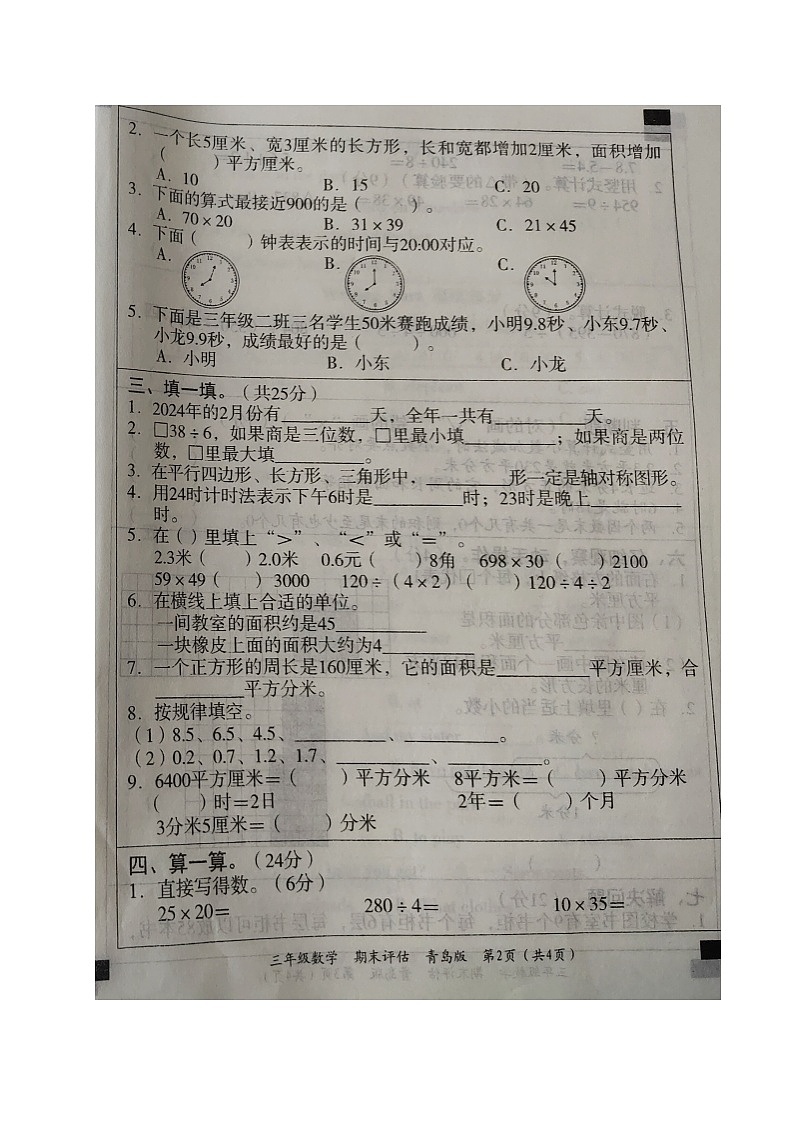 2. 一个长5厘米、宽3厘米的长方形，长和宽都增加2厘米，面积增加
（ ）平方厘米。
A. 10 B. 15 C. 20
3. 下面的算式最接近900的是（ ）。
A. 70×20 B. 31×39 C. 21×45
4. 下面（ ）钟表表示的时间与20:00对应。
A. B. C.
5. 下面是三年级二班三名学生50米赛跑成绩，小明9.8秒、小东9.7秒、
小龙9.9秒，成绩最好的是（ ）。
A. 小明 B. 小东 C. 小龙
三、填一填。（共25分）
1. 2024年的2月份有________天，全年一共有________天。
2. □38÷6，如果商是三位数，□里最小填________；如果商是两位
数，□里最大填________。
3. 在平行四边形、长方形、三角形中，________形一定是轴对称图形。
4. 用24时计时法表示下午6时是________时；23时是晚上________
时。
5. 在（）里填上“>”、“<”或“=”。
2.3米（ ）2.0米 0.6元（ ）8角 698×30（ ）2100
59×49（ ）3000 120÷（4×2）（ ）120÷4÷2
6. 在横线上填上合适的单位。
一间教室的面积约是45________
一块橡皮上面的面积大约为4________
7. 一个正方形的周长是160厘米，它的面积是________平方厘米，合
________平方分米。
8. 按规律填空。
（1）8.5、6.5、4.5、________、________。
（2）0.2、0.7、1.2、1.7、________、________。
9. 6400平方厘米=（ ）平方分米 8平方米=（ ）平方分米
（ ）时=2日 2年=（ ）个月
3分米5厘米=（ ）分米
四、算一算。（24分）
1. 直接写得数。（6分）
25×20= 280÷4= 10×35=
三年级数学 期末评估 青岛版 第2页（共4页）